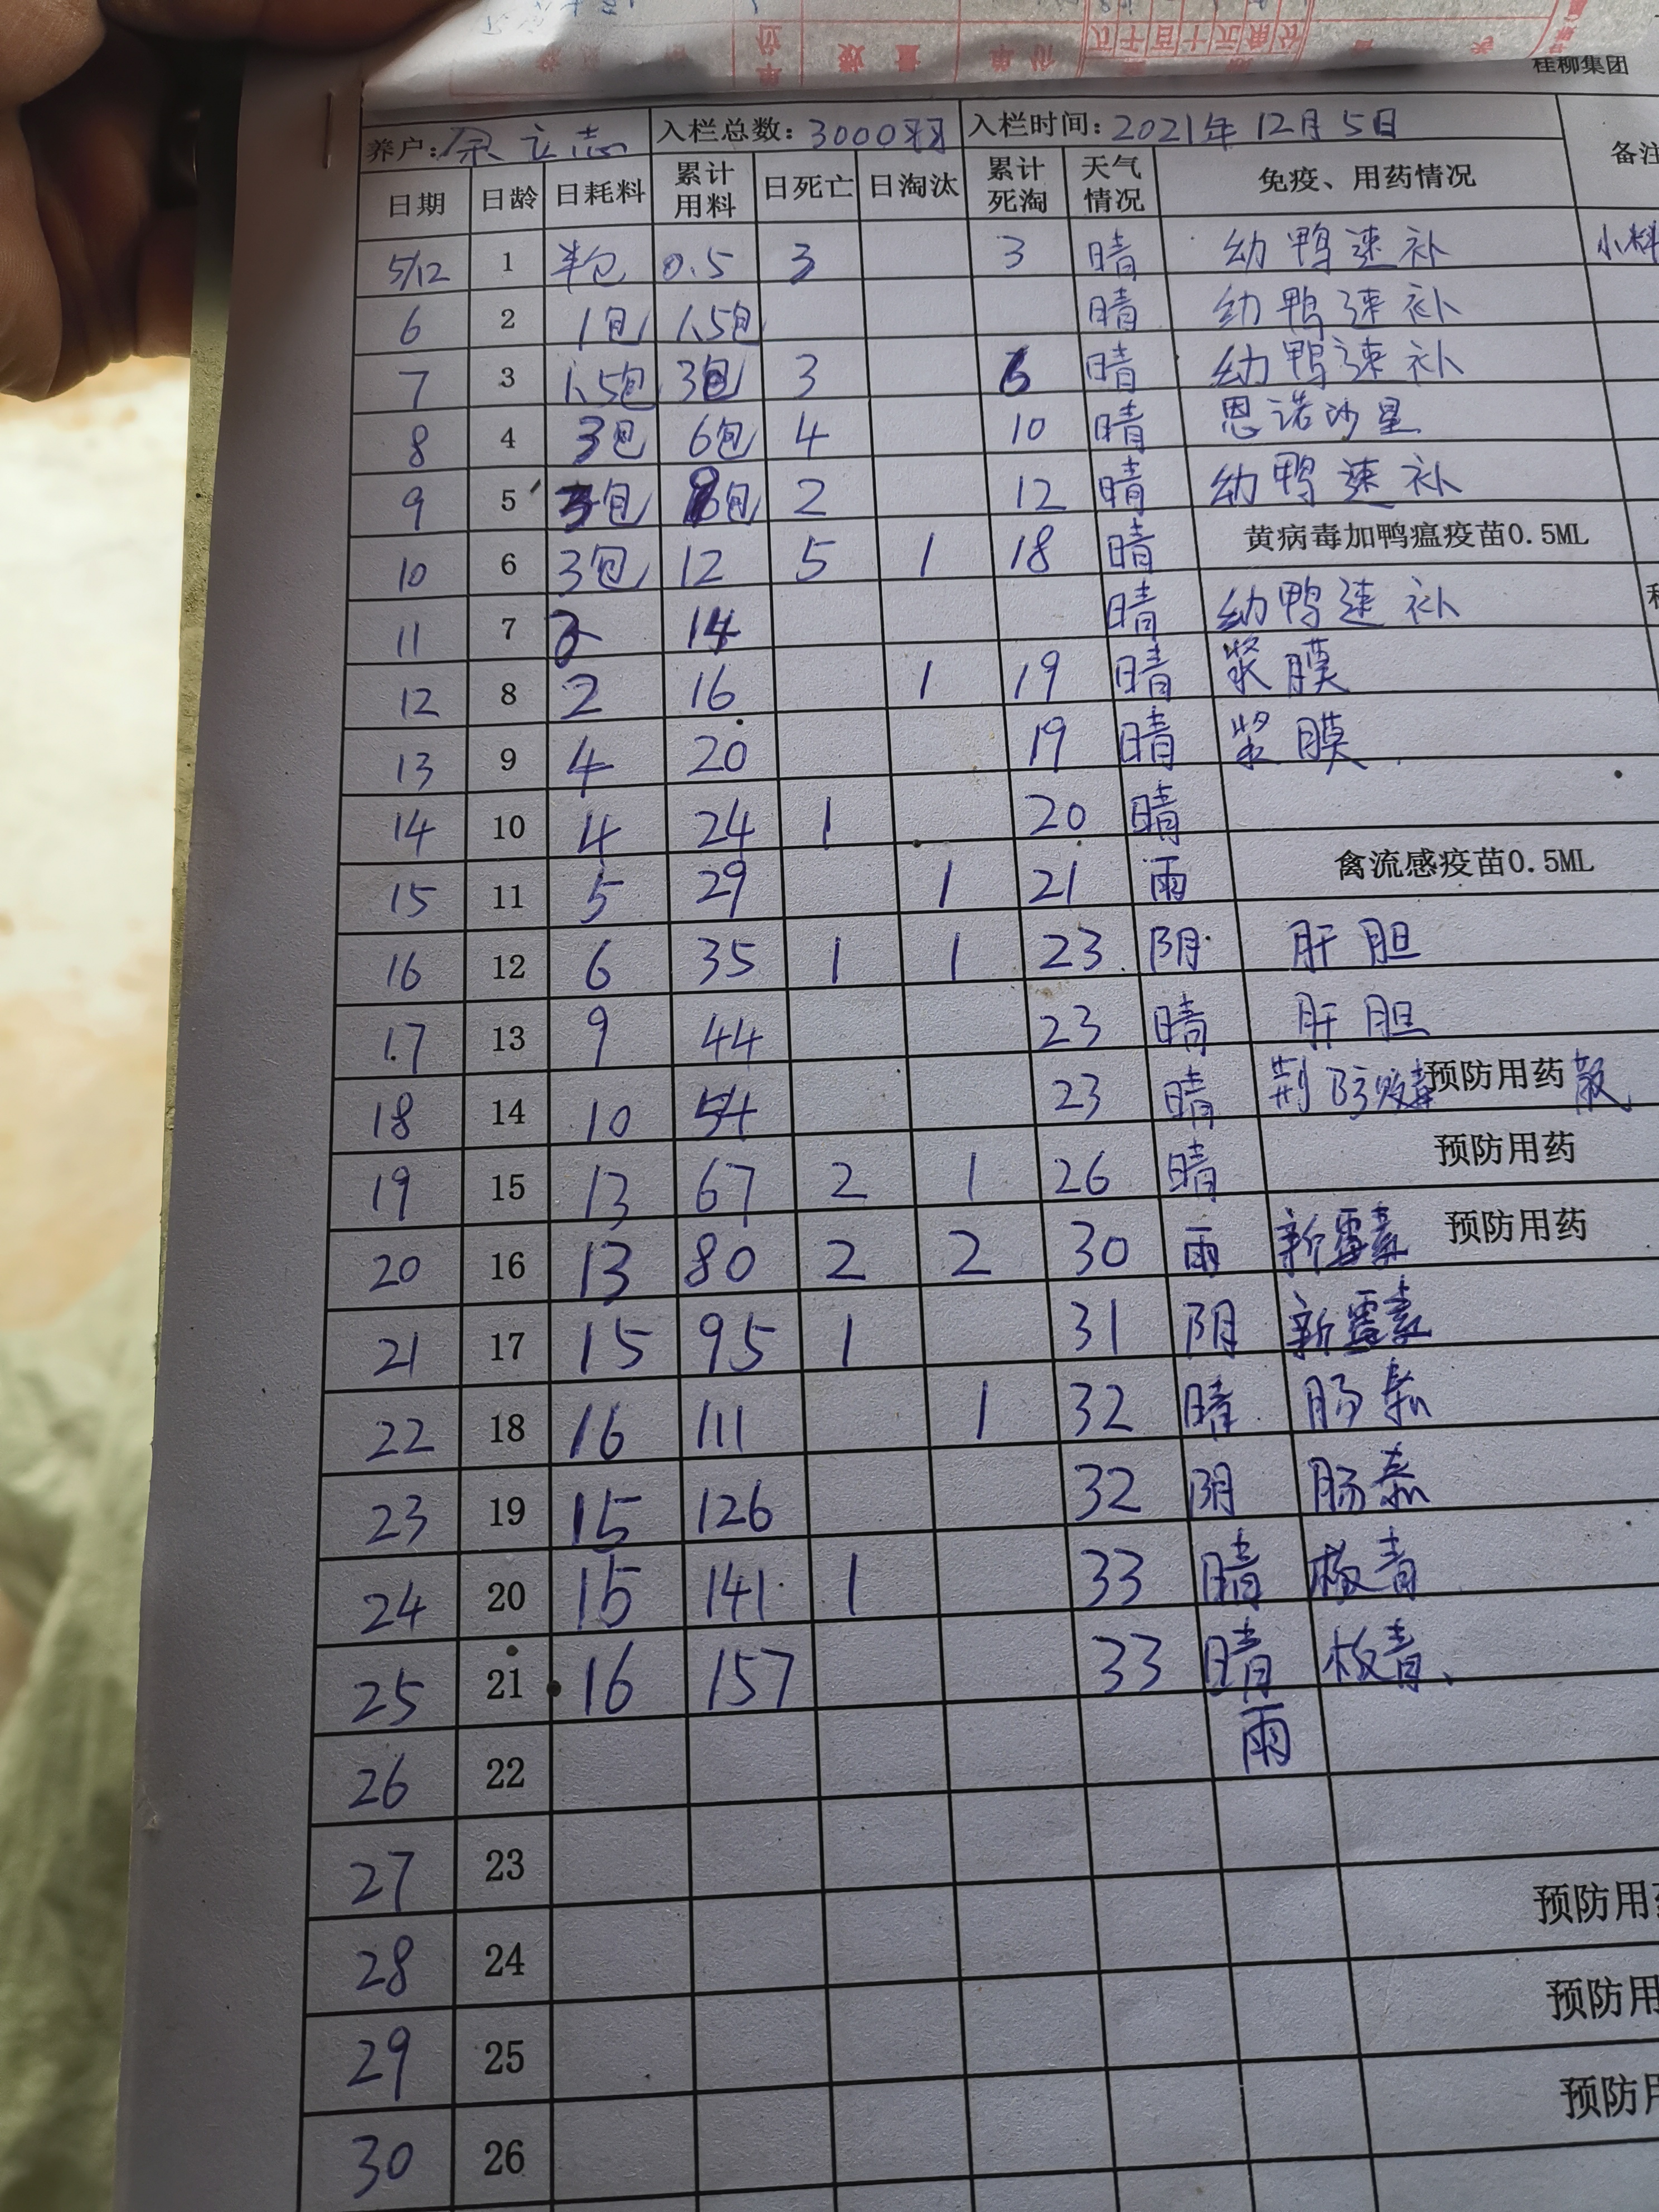 桂柳集团
养户: 余立志 入栏总数: 3000羽 入栏时间: 2021年12月5日 备注
日期 日龄 日耗料 累计用料 日死亡 日淘汰 累计死淘 天气情况 免疫、用药情况
5/12 1 半包 0.5 3 3 晴 幼鸭速补 小料
6 2 1包 1.5包 晴 幼鸭速补
7 3 1.5包 3包 3 6 晴 幼鸭速补
8 4 3包 6包 4 10 晴 恩诺沙星
9 5 3包 9包 2 12 晴 幼鸭速补
10 6 3包 12 5 1 18 晴 黄病毒加鸭瘟疫苗0.5ML
11 7 2 14 晴 幼鸭速补
12 8 2 16 1 19 晴 浆膜
13 9 4 20 19 晴 浆膜
14 10 4 24 1 20 晴
15 11 5 29 1 21 雨 禽流感疫苗0.5ML
16 12 6 35 1 1 23 阴 肝胆
17 13 9 44 23 晴 肝胆
18 14 10 54 23 晴 荆防败毒散 预防用药
19 15 13 67 2 1 26 晴 预防用药
20 16 13 80 2 2 30 雨 新霉素 预防用药
21 17 15 95 1 31 阴 新霉素
22 18 16 111 1 32 晴 肠泰
23 19 15 126 32 阴 肠泰
24 20 15 141 1 33 晴 板青
25 21 16 157 33 晴 板青
26 22 雨
27 23
28 24 预防用
29 25 预防用
30 26 预防用